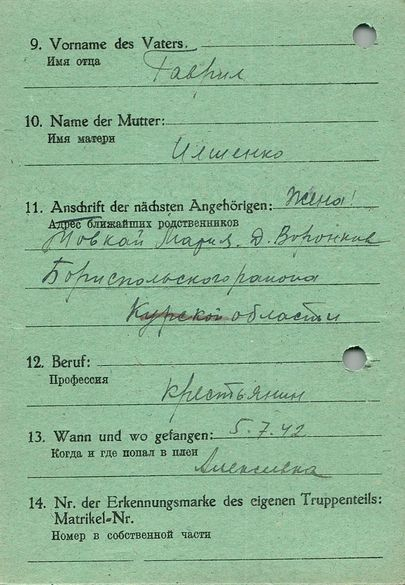 9. Vorname des Vaters.
Имя отца
Гаврил
10. Name der Mutter:
Имя матери
Ильшенко
11. Anschrift der nächsten Angehörigen: Жена!
Адрес ближайших родственников
Товкай Мария. Д. Воронков
Бориспольского района
Курской области
12. Beruf:
Профессия
крестьянин
13. Wann und wo gefangen: 5.7.42
Когда и где попал в плен
Алексеевка
14. Nr. der Erkennungsmarke des eigenen Truppenteils:
Matrikel-Nr.
Номер в собственной части